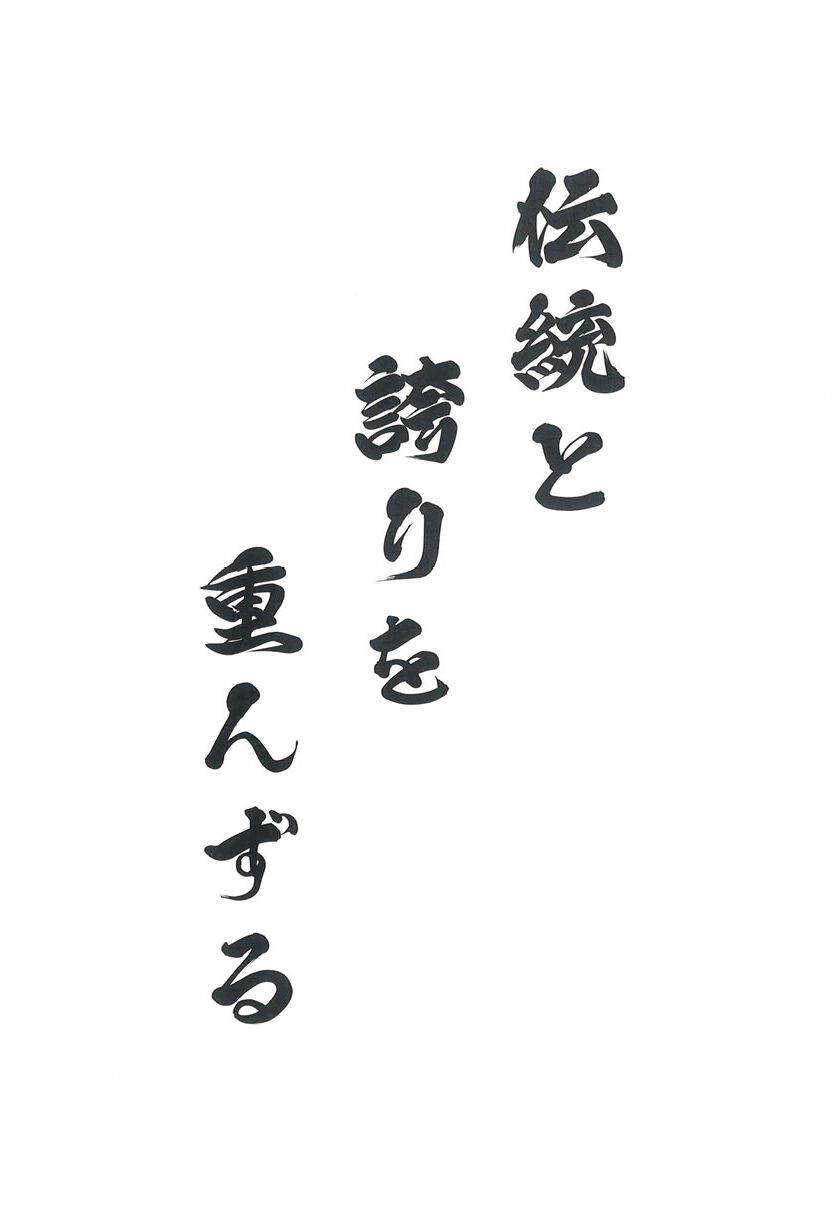 伝統と
誇りを
重んずる